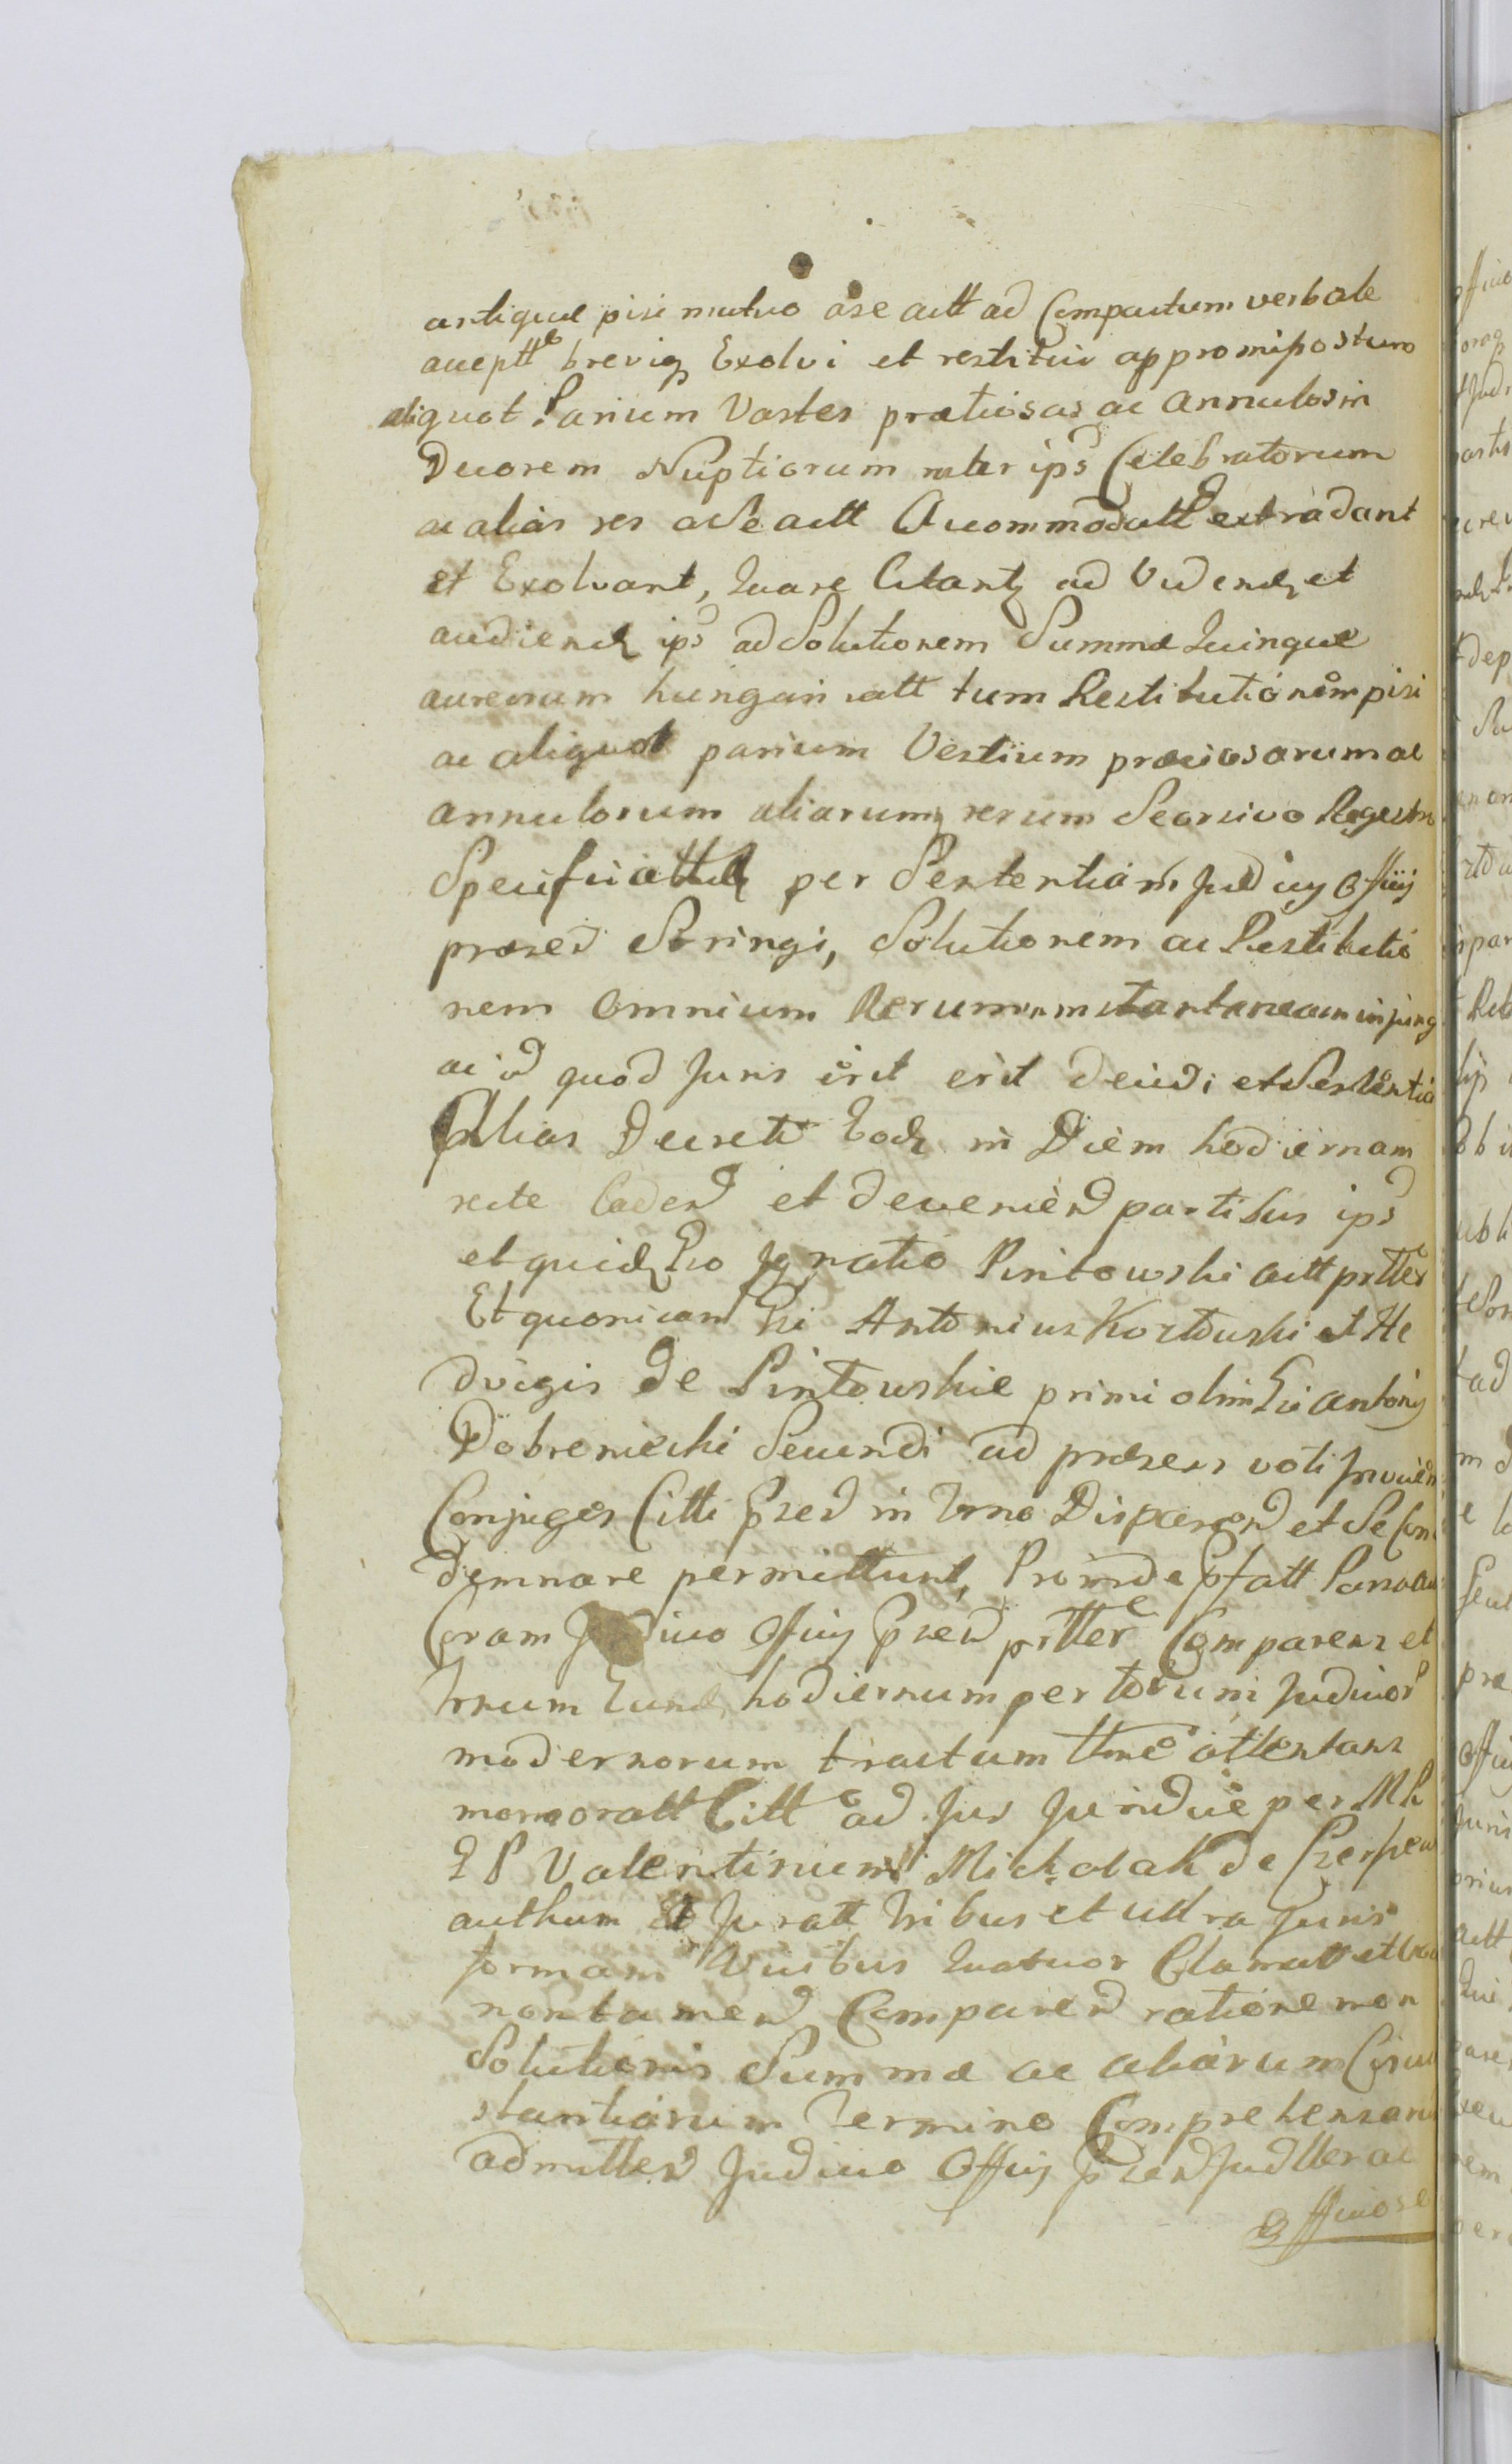 antiquæ pisi mutuo a se actt ad Compactum verbale
acceptt brevig Exolvi et restitui appromiposturo
aliquot Parium Vastes prætiosas ac annulos in
Decorem Nuptiarum inter ips Celebratorum
ac alias res a se actt Accommodatt extradant
et Exolvant, Quare Citantq ad Videndq et
audiendq ips ad Solutionem Summæ Quinque
aureorum hungari catt tum Restitutionem pisi
ac aliquot parium Vestium præciosarum ac
annulorum aliarumq rerum Seorsivo Regestro
Specificatt per Sententiam Judicij Officij
præsed Stringi, Solutionem ac Restitutio
nem omnium Rerum instantaneam injung
ac id quod Juris erit decidi et Sententia
Alias Decreti Eodq in Diem hodiernam
recte Caden et devenien partibus ips
et quidq Gso Ignatio Pintowski actt prtter
Et quoniam Gsi Antonius Kortowski et He
dvigis de Pintowskie primi olim Gsi antonij
Dobreniecki Secundi ad præsens voti
Conjuges Citti Psed in Trno Disparen et Se Con
demnare permittunt, Proinde Pfatt Pars act
Coram Judicio Officij Psed prtter Comparens et
Trnum Eundq hodiernum per totum Judicior
modernorum tractum ttne attentans
memoratt Citt ad Jus Juridice per Mk
Valentinum Michalak de
authum et Juratt Tribus et ultra Juris
formam Vicibus Quatuor Clamatt et
non tamen Comparen ratione non
Solutionis Summæ ac aliarum Circum
stantiarum Termino Comprehensarum
admitten Judicio Officij Psed Judtter ac
Officiose